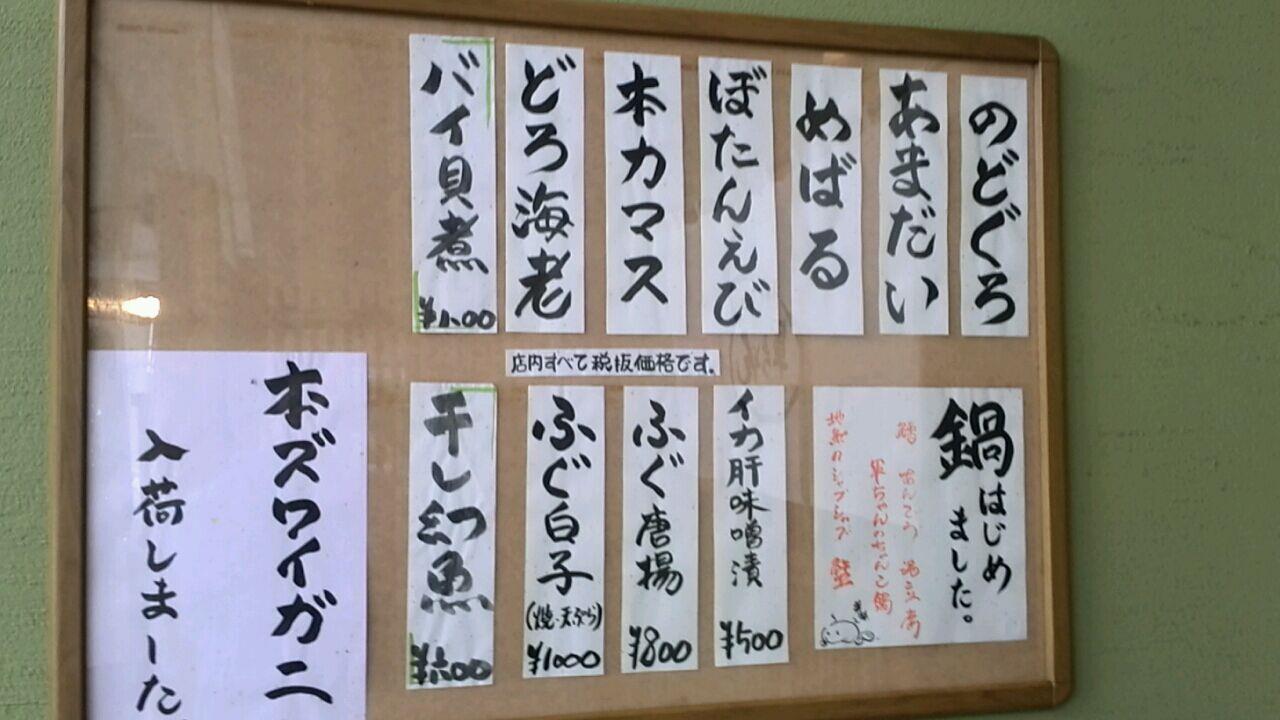 のどぐろ
あまだい
めばる
ぼたんえび
本カマス
どろ海老
バイ貝煮
¥八00
店内すべて税抜価格です。
鍋はじめ
ました。
鱈 あんこう 湯豆腐
軍ちゃんのちゃんこ鍋
地魚のシャブシャブ 蟹
イカ肝味噌漬
¥500
ふぐ唐揚
¥800
ふぐ白子
(焼・天ぷら)
¥1000
干し幻魚
¥六00
本ズワイガニ
入荷しました